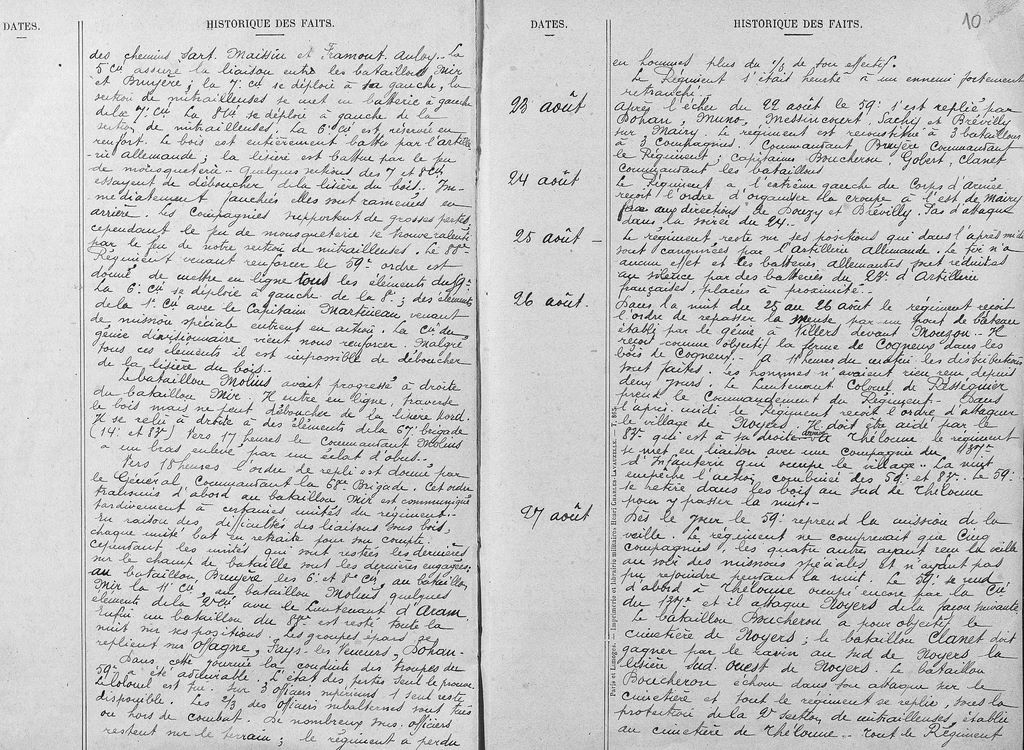 DATES.
HISTORIQUE DES FAITS.
des chemins Sart. Maissin et Framont. Anloy.. La
5e Cie assure la liaison entre les bataillons Mir
et Bruyère ; la 7e Cie se déploie à sa gauche, la
section de mitrailleuses se met en batterie à gauche
de la 7e Cie. La 8e Cie se déploie à gauche de la
section de mitrailleuses. La 6e Cie est réservée en
renfort. Le bois est entièrement battu par l'artille-
rie allemande ; la lisière est battue par le feu
de mousqueterie.. Quelques sections des 7 et 8e Cies
essayent de déboucher de la lisière du bois.. Im-
médiatement fauchées elles sont ramenées en
arrière. Les Compagnies supportent de grosses pertes
cependant le feu de mousqueterie se trouve ralenti
par le feu de notre section de mitrailleuses. Le 88e
Régiment venant renforcer le 59e ordre est
donné de mettre en ligne tous les éléments du 59e
La 6e Cie se déploie à gauche de la 8e ; des éléments
de la 1e Cie avec le Capitaine Martineau venant
de mission spéciale entrent en action. La Cie du
génie divisionnaire vient nous renforcer. Malgré
tous ces éléments il est impossible de déboucher
de la lisière du bois..
Le bataillon Molius avait progressé à droite
du bataillon Mir. Il entre en ligne, traverse
le bois mais ne peut déboucher de la lisière Nord.
Il se relie à droite à des éléments de la 67e brigade
(14e et 83e) Vers 17 heures le Commandant Molius
a un bras enlevé par un éclat d'obus..
Vers 18 heures l'ordre de repli est donné par
le Général Commandant la 68e Brigade. Cet ordre
transmis d'abord au bataillon Mir est communiqué
tardivement à certaines unités du régiment..
En raison des difficultés des liaisons sous bois,
chaque unité bat en retraite pour son compte.
Cependant les unités qui sont restées les dernières
sur le champ de bataille sont les dernières engagées;
au bataillon Bruyère les 6e et 8e Cies, au bataillon
Mir la 11e Cie, au bataillon Molius quelques
éléments de la 2e Cie avec le Lieutenant d'Aram.
Enfin un bataillon du 88e est resté toute la
nuit sur ses positions. Les groupes épars se
replient sur Offagne, Fays-les Veneurs, Dohan-
Dans cette journée la conduite des troupes du
59e a été admirable. L'état des pertes seul le prouve
Le Colonel est tué. Sur 3 officiers supérieurs 1 seul reste
disponible. Les 2/3 des officiers subalternes sont tués
ou hors de combat. De nombreux sous. officiers
restent sur le terrain ; le régiment a perdu
DATES.
HISTORIQUE DES FAITS.
10
en hommes plus du 1/3 de son effectif.
Le Régiment s'était heurté à un ennemi fortement
retranché.
23 août
Après l'échec du 22 août le 59e s'est replié par
Dohan, Muno, Messincourt, Sachy et Brévilly
sur Mairy. Le régiment est reconstitué à 3 bataillons
à 3 Compagnies. Commandant Bruyère Commandant
le Régiment ; capitaines Boucheron, Gobert, Clanet
Commandant les bataillons
24 août
Le Régiment à l'extrême gauche du Corps d'Armée
reçoit l'ordre d'organiser la croupe à l'est de Mairy
face aux directions de Douzy et Brévilly. Pas d'attaque
dans la soirée du 24..
25 août –
Le régiment reste sur ses positions qui dans l'après midi
sont canonnées par l'artillerie allemande. Le tir n'a
aucun effet et les batteries allemandes sont réduites
au silence par des batteries du 23e d'Artillerie
françaises, placées à proximité.
26 août.
Dans la nuit du 25 au 26 août le régiment reçoit
l'ordre de repasser la Meuse par un pont de bateau
établi par le génie à Villers devant Mouzon.. Il
reçoit comme objectif la ferme de Cogneux dans les
bois de Cogneux.- à 11 heures du matin les distributions
sont faites. Les hommes n'avaient rien reçu depuis
deux jours. Le Lieutenant Colonel de Passignier
prend le Commandement du Régiment.- Dans
l'après-midi le Régiment reçoit l'ordre d'attaquer
le village de Noyers. Il doit être aidé par le
83e qui est à sa droite. Arrivé à Thélonne le régiment
se met en liaison avec une compagnie du 137e
d'Infanterie qui occupe le village.. La nuit
empêche l'action combinée des 59e et 83e. Le 59e
se retire dans les bois au Sud de Thélonne
pour y passer la nuit.-
27 août
Dès le jour le 59e reprend la mission de la
veille. Le régiment ne comprenait que Cinq
Compagnies, les quatre autres ayant reçu la veille
au soir des missions spéciales et n'ayant pas
pu rejoindre pendant la nuit. Le 59e se rend
d'abord à Thélonne occupé encore par la Cie
du 137e et il attaque Noyers de la façon suivante
Le bataillon Boucheron a pour objectif le
cimetière de Noyers ; le bataillon Clanet doit
gagner par le ravin au sud de Noyers la
lisière Sud. Ouest de Noyers. Le bataillon
Boucheron échoue dans son attaque sur le
cimetière et tout le régiment se replie, sous la
protection de la 2e Section de mitrailleuses, établie
au cimetière de Thélonne.. Tout le Régiment
Paris et Limoges. — Imprimerie et librairie militaires Henri CHARLES-LAVAUZELLE.